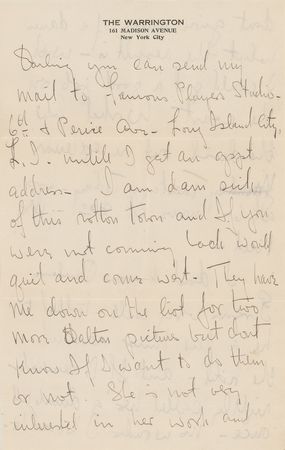 THE WARRINGTON
161 MADISON AVENUE
New York City
Darling you can send my
mail to Famous Players Studio-
6th & Perice Ave- Long Island City,
L.I. untile I get an appt
address- I am dam sick
of this rotton town and If you
were not comming back would
quit and come west- They have
me down on the list for two
more Dalton pictures but dont
know If I want to do them
or not. She is not very
interested in her work and